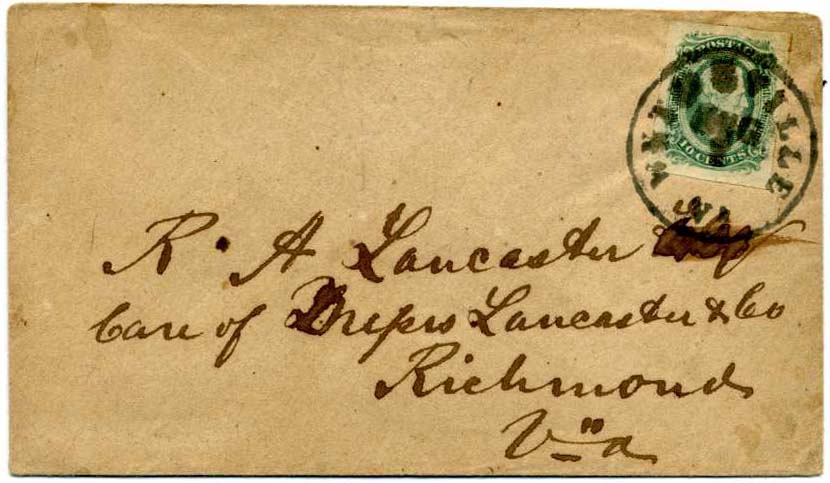 POSTAGE
10 CENTS
WYTHEVILLE
VA
R. A Lancaster
Care of Messrs Lancaster & Co
Richmond
Va